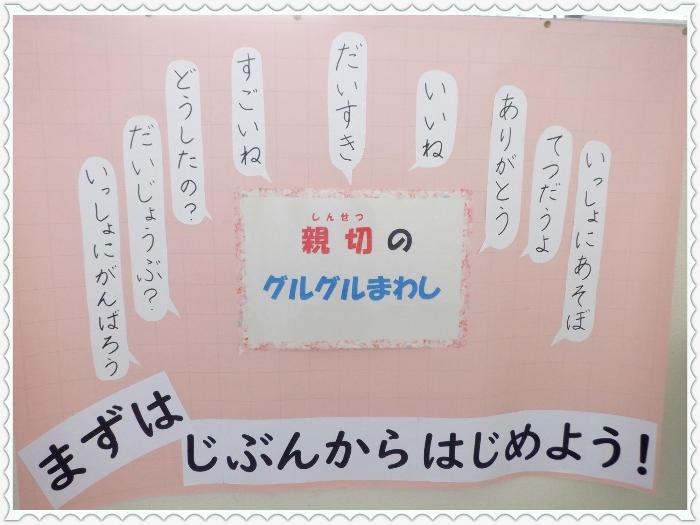 いっしょにあそぼ
てつだうよ
ありがとう
いいね
だいすき
すごいね
どうしたの？
だいじょうぶ？
いっしょにがんばろう
しんせつ
親切の
グルグルまわし
まずは
じぶんからはじめよう！